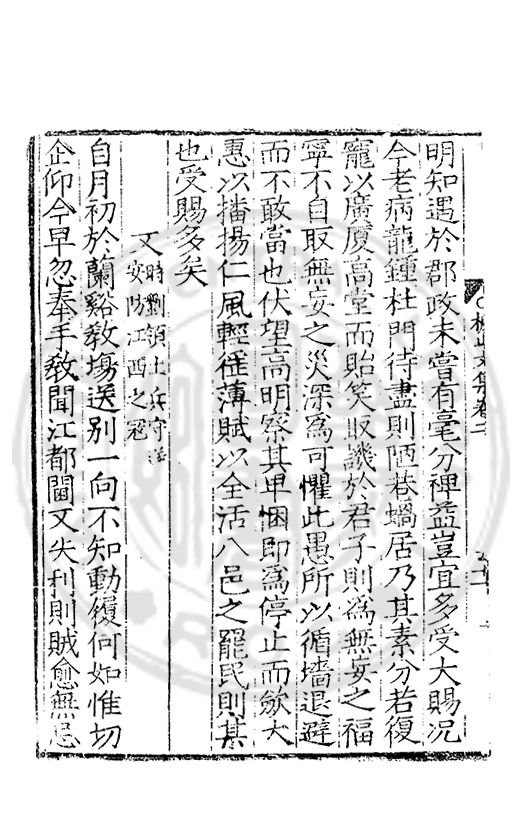 明知遇於郡政未嘗有毫分裨益豈宜多受大賜況
今老病龍鍾杜門待盡則陋巷蝸居乃其素分若復
寵以廣廈高堂而貽笑取譏於君子則為無妄之福
寧不自取無妄之災深為可懼此愚所以循墻退避
而不敢當也伏望高明察其卑悃即為停止而歛大
惠以播揚仁風輕徭薄賦以全活八邑之罷民則某
也受賜多矣
又時劉領土兵守
安防江西之冦
自月初於蘭谿教塲送别一向不知動履何如惟切
企仰今早忽奉手教聞江都閫又失利則賊愈無忌
山文集卷二